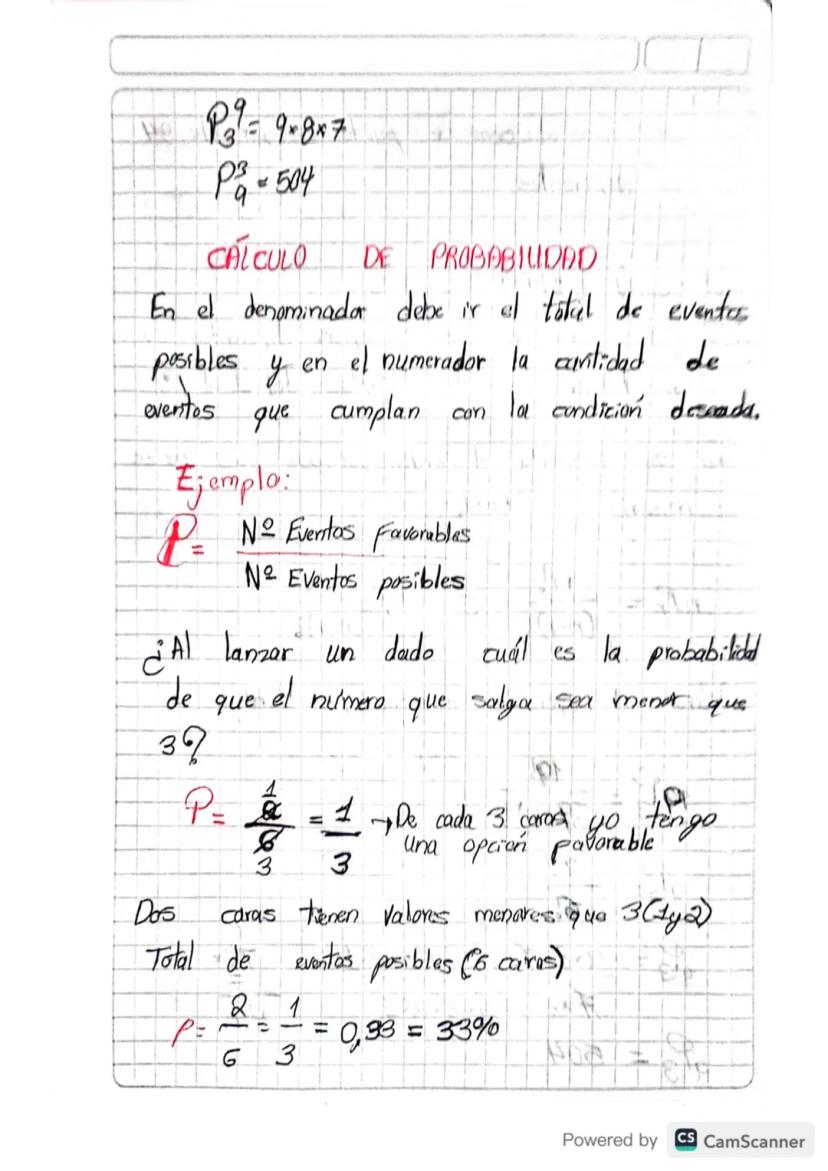 P₃⁹ = 9×8×7
P₉³ = 504
CÁLCULO DE PROBABILIDAD
En el denominador debe ir el total de eventos
posibles y en el numerador la cantidad de
eventos que cumplan con la condición deseada.
Ejemplo:
P = Nº Eventos Favorables
Nº Eventos posibles
¿Al lanzar un dado cuál es la probabilidad
de que el número que salga sea menor que
3?
1
P = 2/6 = 1/3 → De cada 3 caras yo tengo
3 una opción favorable
Dos caras tienen valores menores que 3(1y2)
Total de eventos posibles (6 caras)
P = 2/6 = 1/3 = 0,33 = 33%
Powered by CS CamScanner